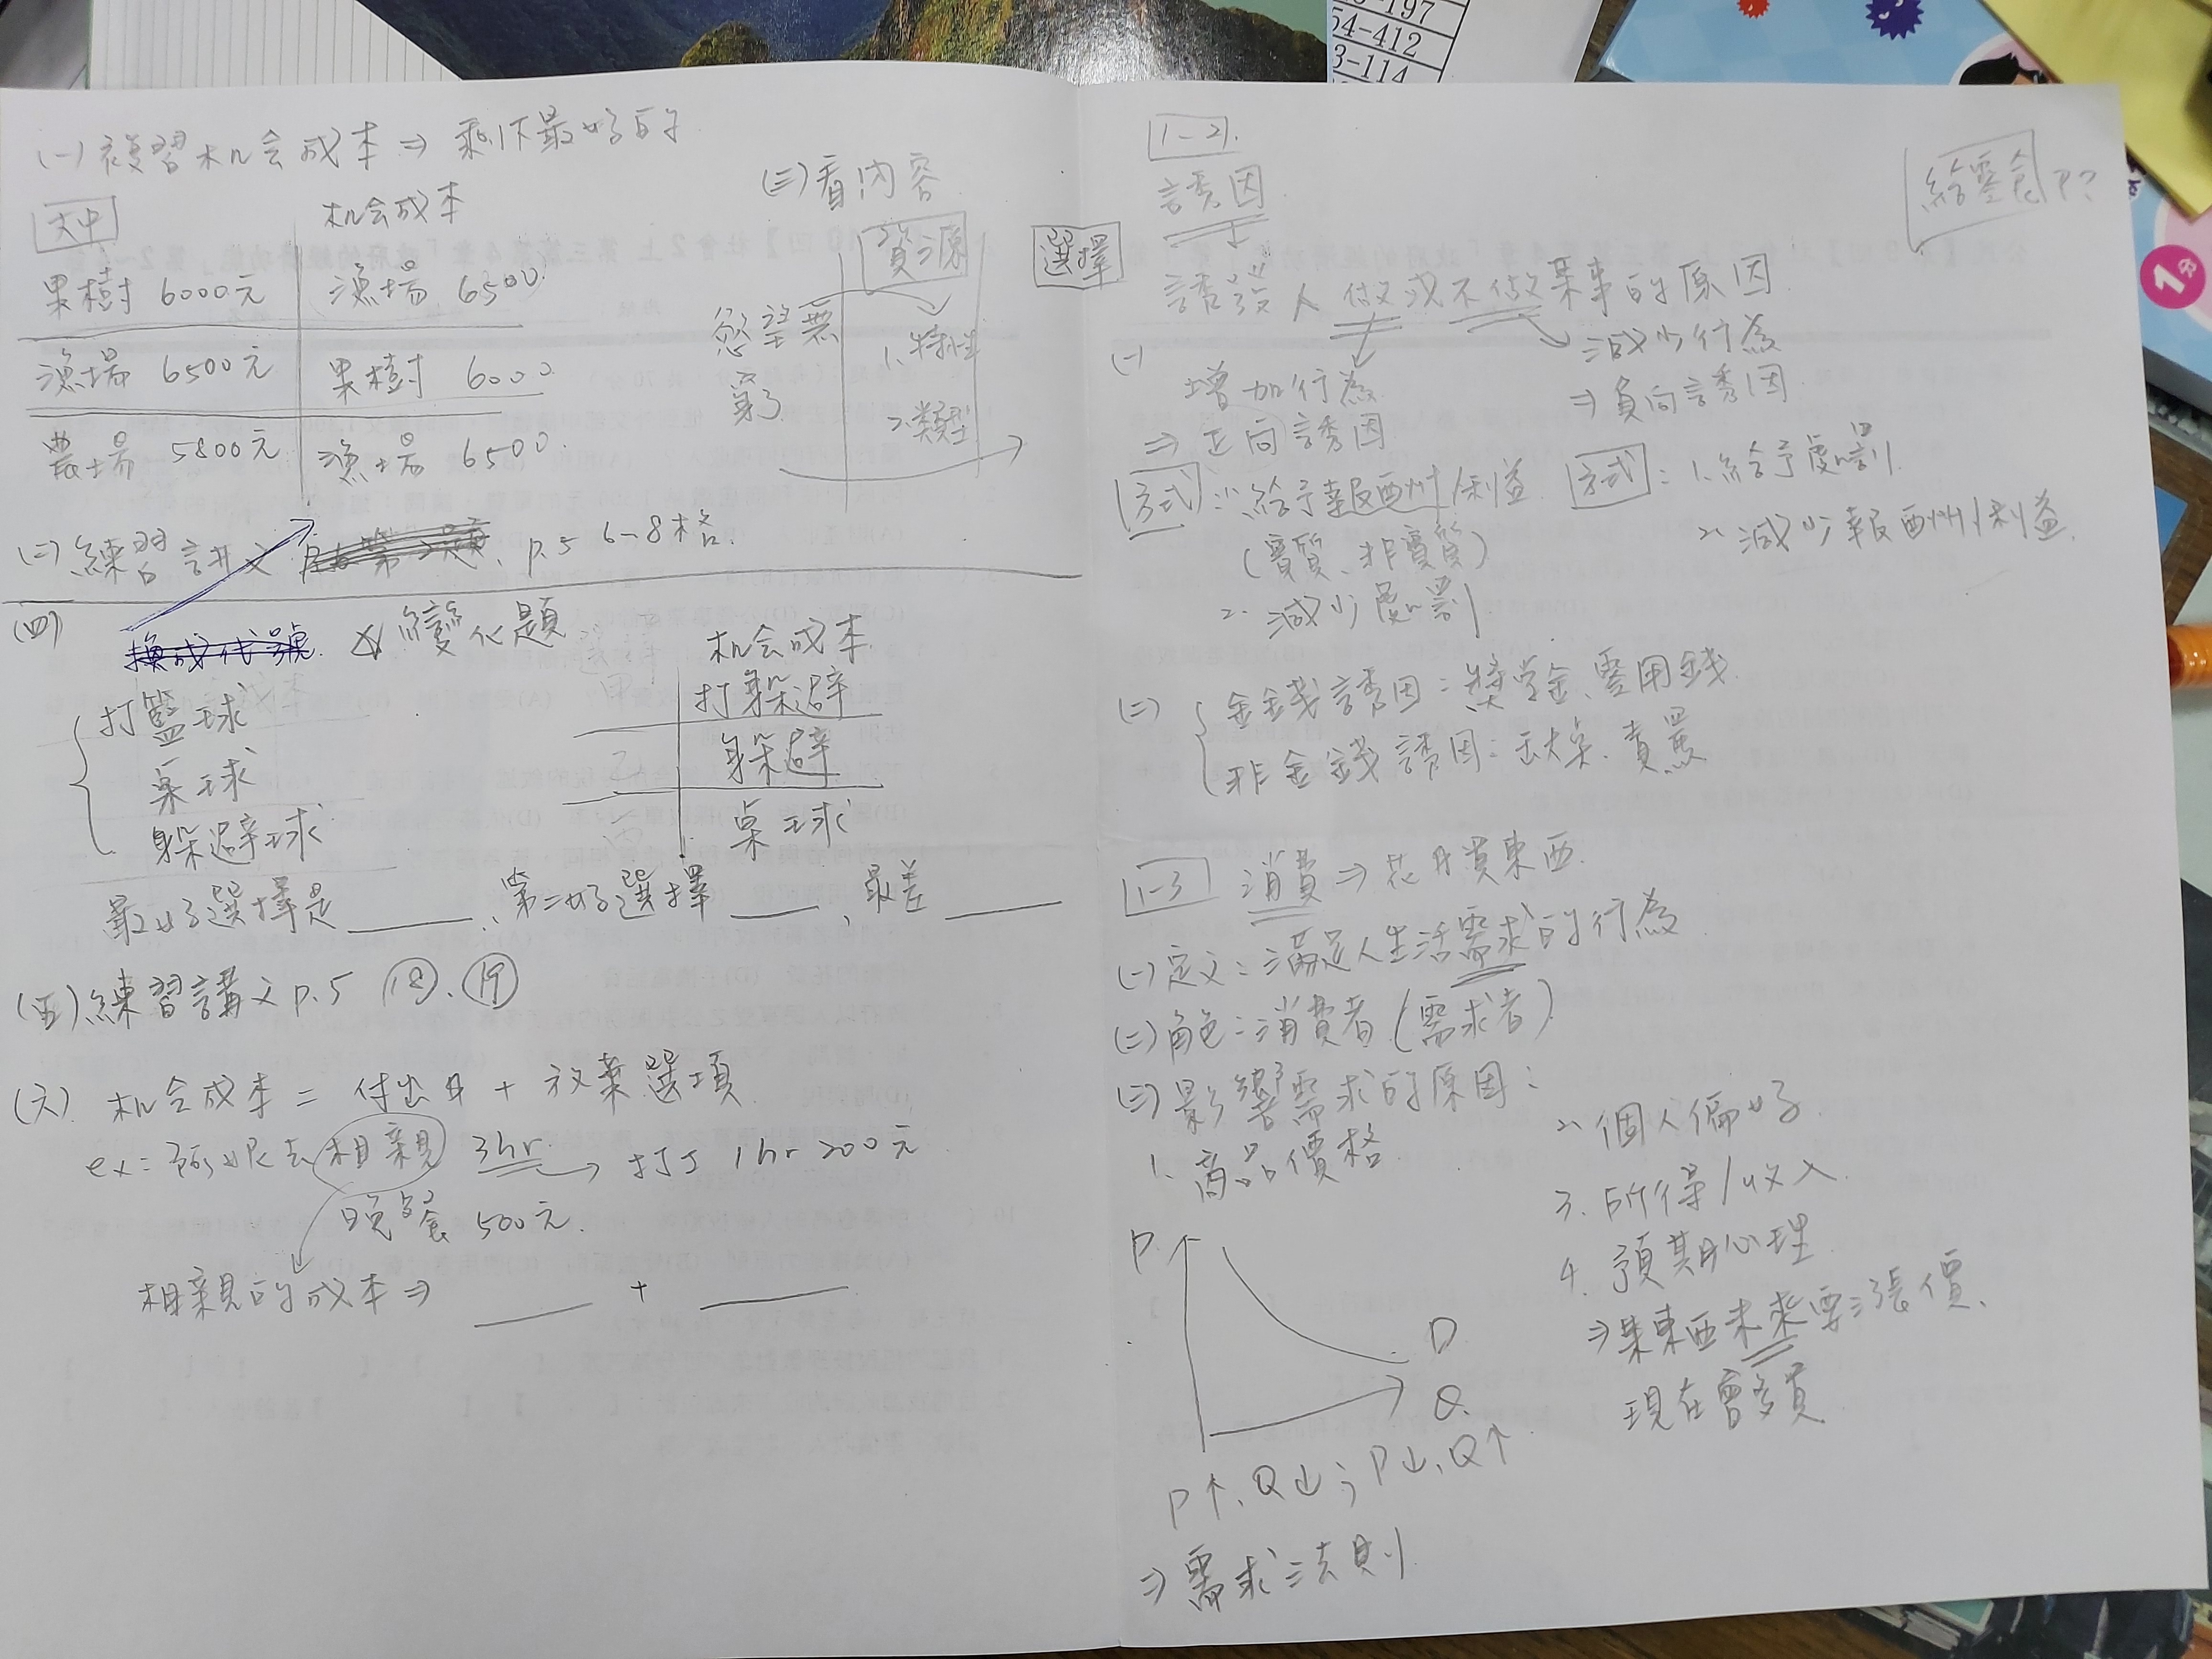 (一)複習机会成本⇒剩下最好的
文中
机会成本
果樹 6000元 漁場 6500.
漁場 6500元 果樹 6000.
農場 5800元 漁場 6500.
(二)練習講义 p.5 6-8格.
(三)看內容
資源
選擇
慾望無窮
1.特性
2.類型
(四)
換成代號. ☆變化題
机会成本.
打籃球
桌球
躲避球
打躲避
躲避
桌球
最好選擇是____、第二好選擇____、最差____
(五)練習講义P.5 ⑱、⑲
(六) 机会成本= 付出$ + 放棄選項
ex: 去相親 3hr → 打工 1hr 200元
晚餐 500元.
相親的成本⇒ ____ + ____
1-2.
誘因
給零食 P?
誘發人做或不做某事的原因
(一)
增加行為
⇒正向誘因
減少行為
⇒負向誘因
方式:1.給予報酬/利益
(實質、非實質)
2.減少處罰
方式:1.給予處罰.
2.減少報酬/利益.
(二)
金錢誘因:獎學金、零用錢.
非金錢誘因:記大功、責罵
1-3 消費⇒花$買東西.
(一)定义:滿足人生活需求的行為
(二)角色:消費者(需求者)
(三)影響需求的原因:
1.商品價格
2.個人偏好.
3.所得/收入.
4.預期心理
⇒某東西未來要漲價、
現在會多買
P
D
Q
P↑、Q↓;P↓、Q↑
⇒需求法則
54-412
3-114